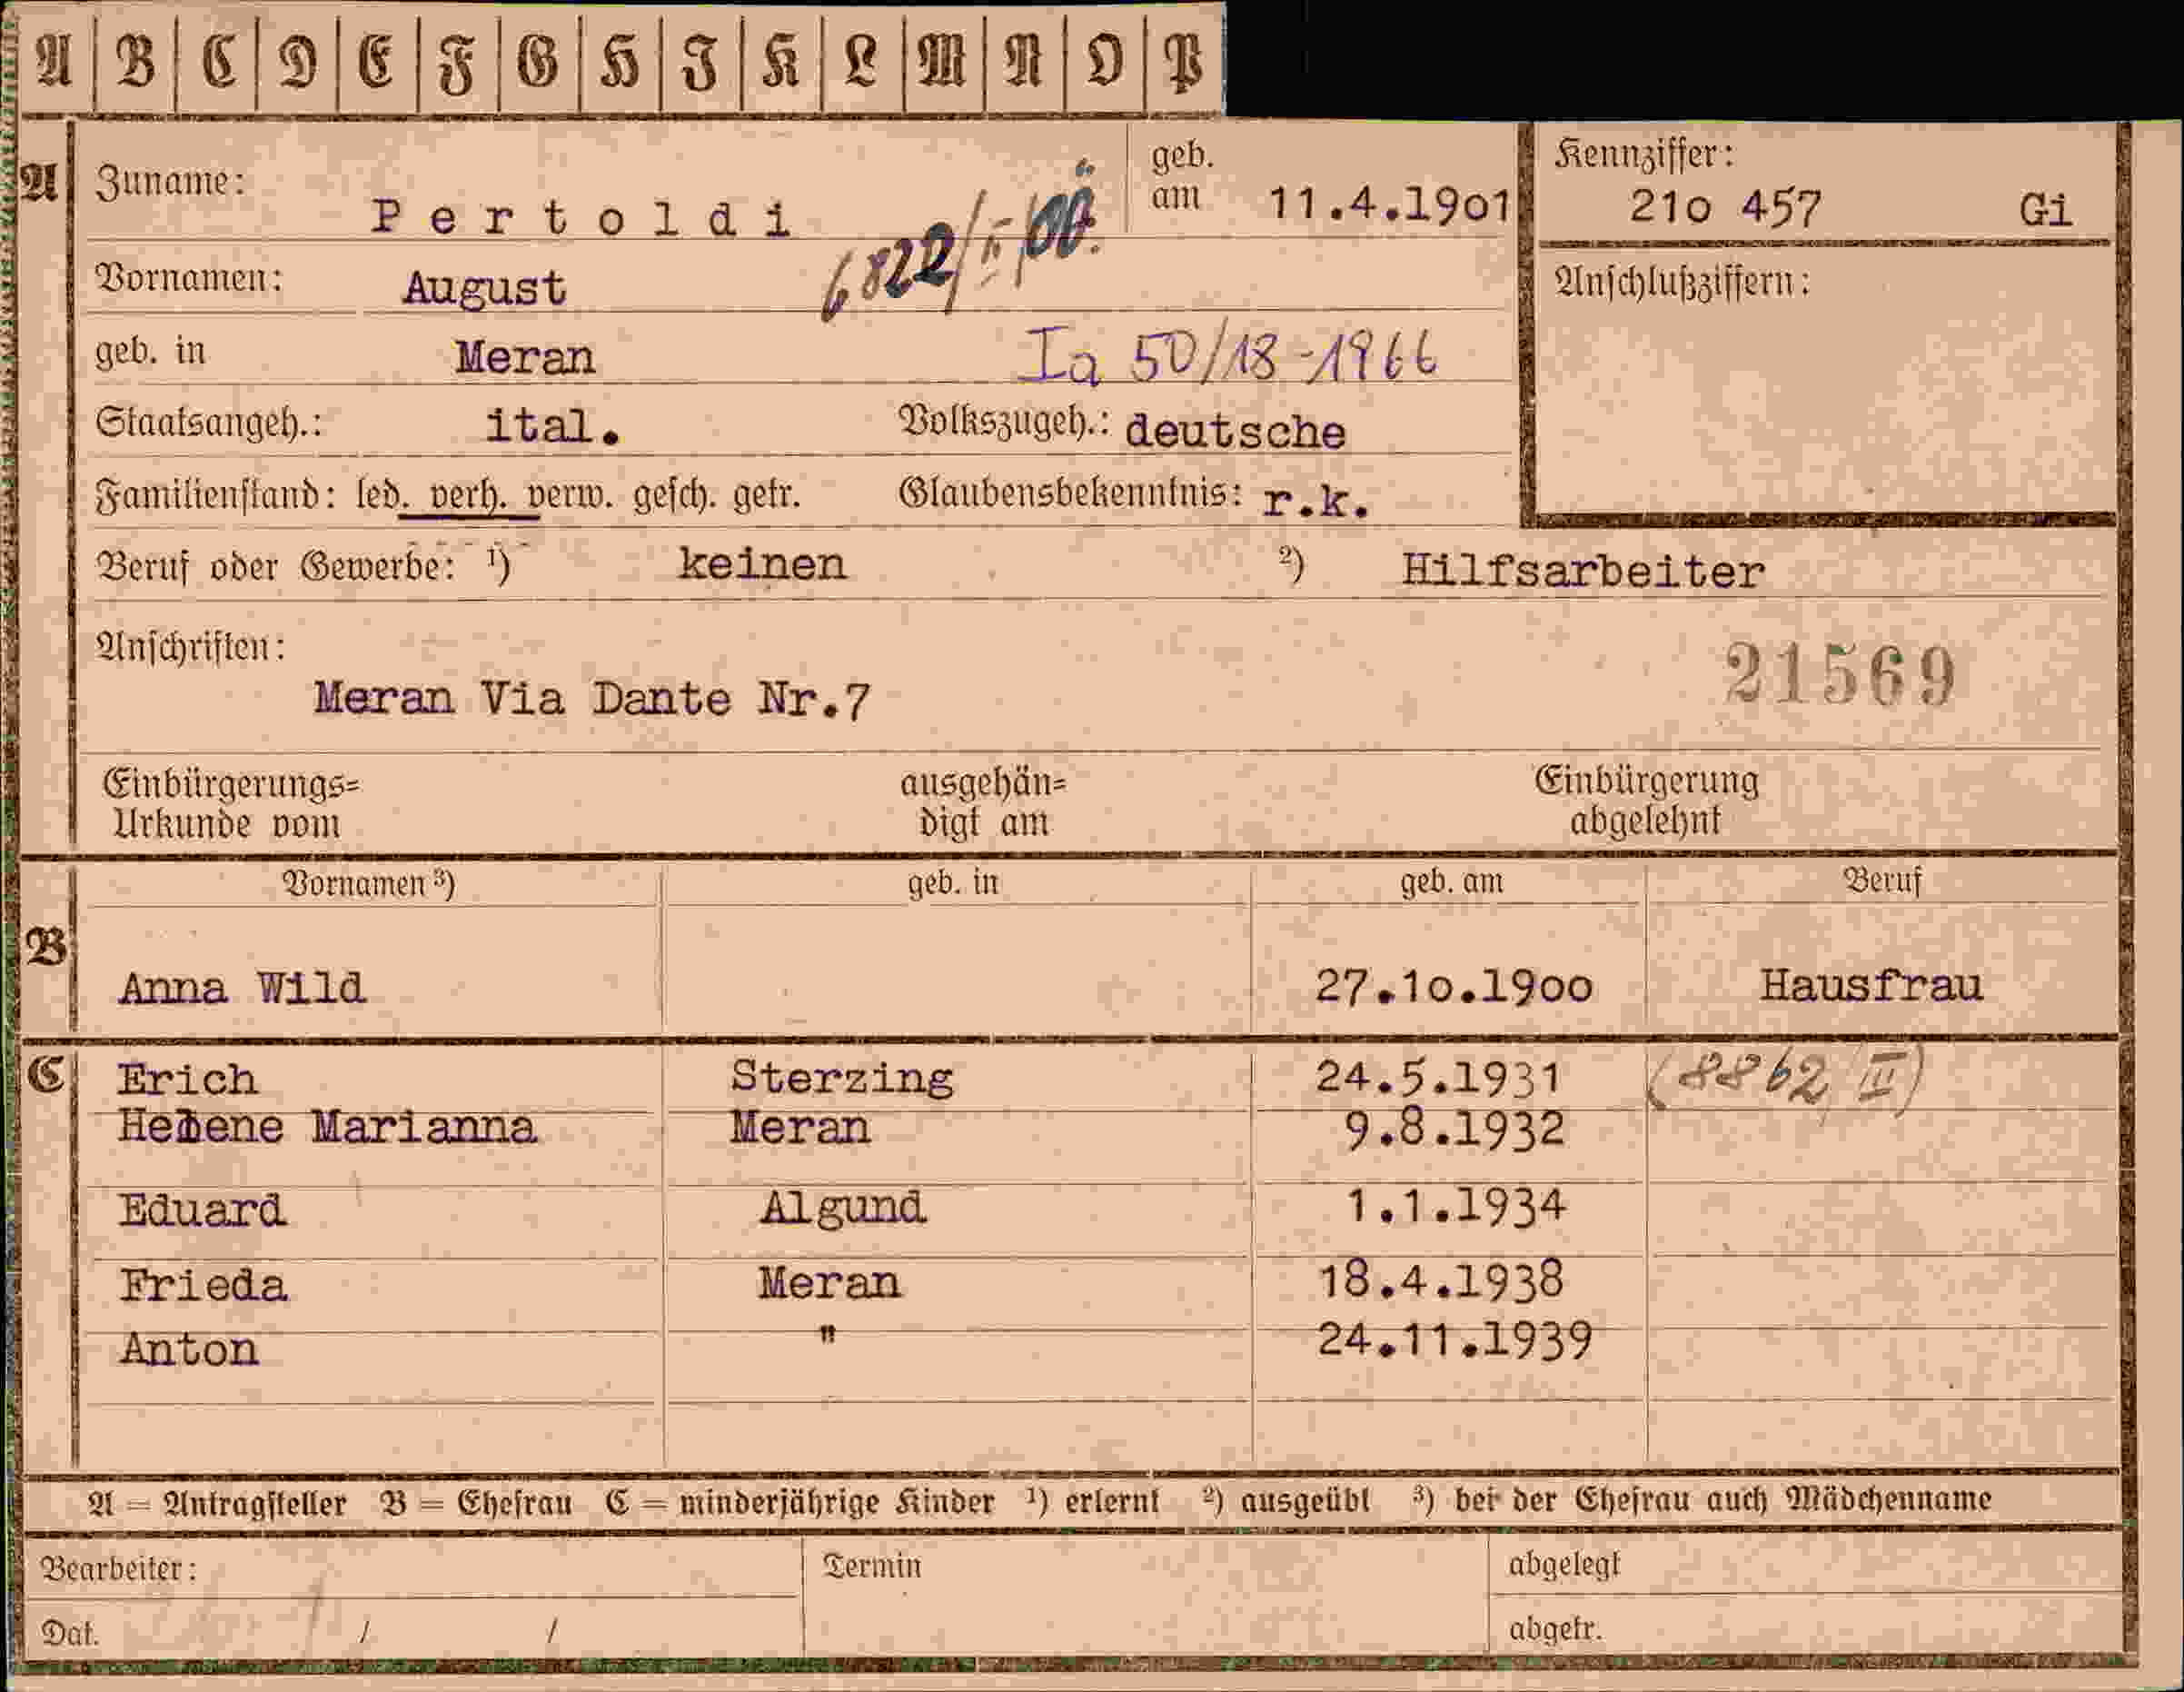 A B C D E F G H I K L M N O P
A Zuname: Pertoldi geb. am 11.4.19o1 Kennziffer: 21o 457 Gi
6822/II/
Vornamen: August Anschlußziffern:
geb. in Meran Ia 50/18-1966
Staatsangeh.: ital. Volkszugeh.: deutsche
Familienstand: led. verh. verw. gesch. getr. Glaubensbekenntnis: r.k.
Beruf oder Gewerbe: 1) keinen 2) Hilfsarbeiter
Anschriften:
21569
Meran Via Dante Nr.7
Einbürgerungs= ausgehän= Einbürgerung
Urkunde vom digt am abgelehnt
Vornamen 3) geb. in geb. am Beruf
B Anna Wild 27.1o.19oo Hausfrau
C Erich Sterzing 24.5.1931 (8862 III)
Helene Marianna Meran 9.8.1932
Eduard Algund 1.1.1934
Frieda Meran 18.4.1938
Anton " 24.11.1939
A = Antragsteller B = Ehefrau C = minderjährige Kinder 1) erlernt 2) ausgeübt 3) bei der Ehefrau auch Mädchenname
Bearbeiter: Termin abgelegt
Dat. / / abgetr.